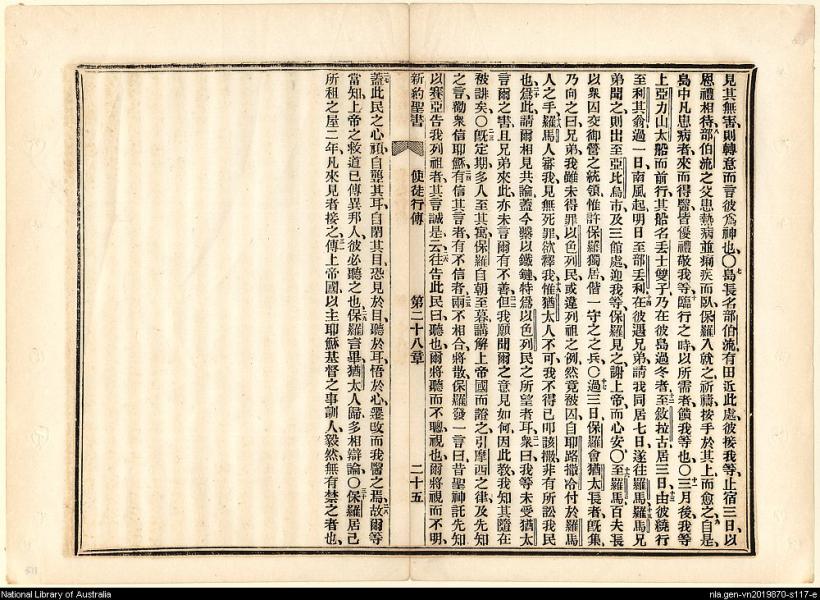 見其無害則轉意而言彼爲神也〇島長名部伯流有田近此處彼接我等止宿三日以
恩禮相待部伯流之父患熱病並痢疾而臥保羅入就之祈禱按手於其上而愈之自是
島中凡患病者來而得醫皆優禮敬我等臨行之時以所需者餽我等也〇三月後我等
上亞力山太船而前行其船名丟士雙子乃在彼島過冬者至敘拉古居三日由彼繞行
至利其翁過一日南風起明日至部丟利在彼遇兄弟請我同居七日遂往羅馬羅馬兄
弟聞之則出至亞比烏市及三館處迎我等保羅見之謝上帝而心安〇至羅馬百夫長
以衆囚交御營之統領惟許保羅獨居偕一守之之兵〇過三日保羅會猶太長者旣集
乃向之曰兄弟我雖未得罪以色列民或違列祖之例然竟被囚自耶路撒冷付於羅馬
人之手羅馬人審我見無死罪欲釋我惟猶太人不可我不得已叩該撒非有所訟我民
也爲此請爾相見共論蓋今繫以鐵鏈特爲以色列民之所望者耳衆曰我等未受猶太
言爾之書且兄弟來此亦未言爾有不善但我願聞爾之意見如何因此教我知其隨在
被誹矣〇旣定期多人至其寓保羅自朝至暮講解上帝國而證之引摩西之律及先知
之言勸衆信耶穌有信其言者有不信者兩不相合將散保羅發一言曰昔聖神託先知
以賽亞告我列祖者其言誠是云往告此民曰聽也爾將聽而不聰視也爾將視而不明
新約聖書 使徒行傳 第二十八章 二十五
蓋此民之心頑自聾其耳自閉其目恐見於目聽於耳悟於心遷改而我醫之焉故爾等
當知上帝之救道已傳異邦人彼必聽之也保羅言畢猶太人歸多相辯論〇保羅居己
所租之屋二年凡來見者接之傳上帝國以主耶穌基督之事訓人毅然無有禁之者也
National Library of Australia
nla.gen-vn2019870-s117-e